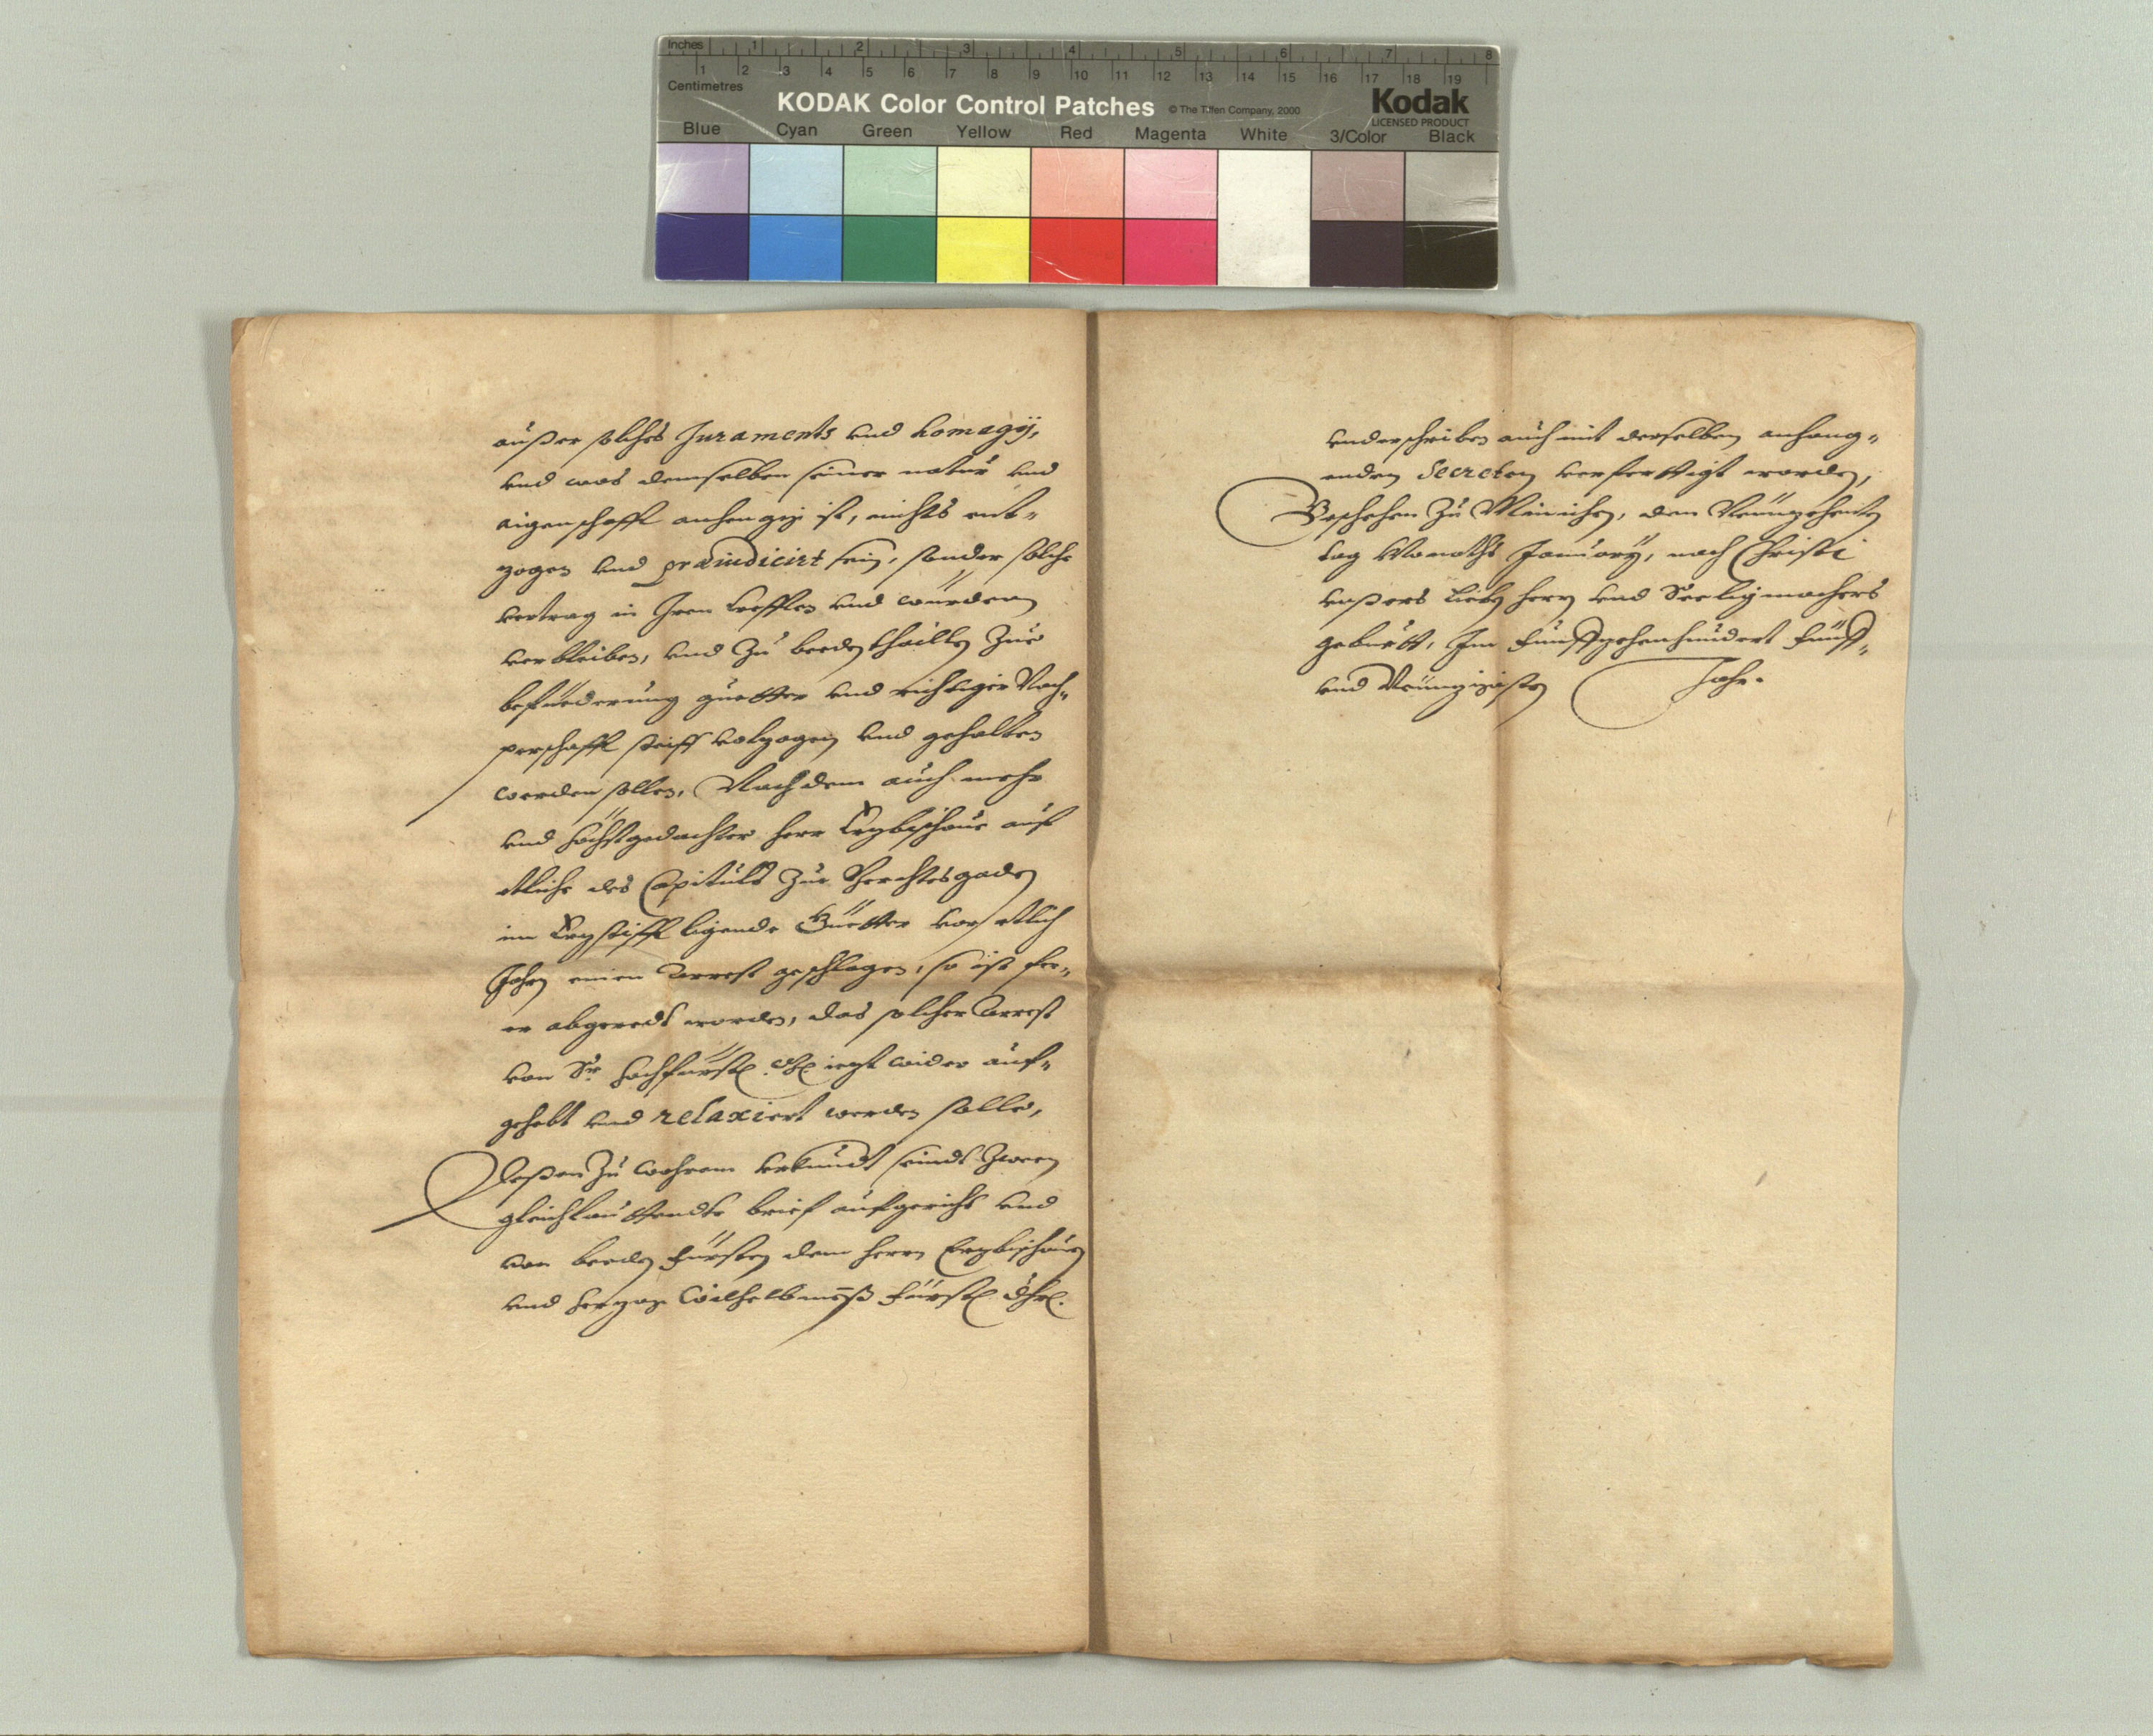 Inches 1 2 3 4 5 6 7 8
1 2 3 4 5 6 7 8 9 10 11 12 13 14 15 16 17 18 19
Centimetres
KODAK Color Control Patches © The Tiffen Company, 2000 Kodak
LICENSED PRODUCT
Blue Cyan Green Yellow Red Magenta White 3/Color Black
ausser solches Juraments und homagij,
und was demselben seiner natur und
aigenschafft anhengig ist, nichts ent-
zogen und præiudicirt sein, sonder solche
vertrag in Iren crefften und würden
verbleiben, und zu beeden thaillen zur
befürderung guetter und richtiger Nach-
perschafft steiff volzogen und gehalten
werden sollen, Nachdem auch mehr
und höchstgedachter herr Erzbischove auf
etliche des Capituls zur Berchtesgaden
im Erzstifft ligende Güetter vor etlich
Jahrn einen Arrest geschlagen, so ist fer-
er abgeredt worden, das solcher Arrest
von Sr. hochfürstl. Gn. iezt wider auf-
gehebt und relaxiert werden solle,
Dessen zu wahrem urkundt seindt zween
gleichlauttendte brief aufgericht und
von beeden Fürsten dem herrn Erzbischoven
und herzog Wilhelbmen Fürstl. Dhrl.
underschriben auch mit derselben anhang-
enden Secreten verferttigt worden,
Beschehen zu Münichen, den Neünzehenten
tag Monaths January, nach Christi
unsers lieben herrn und Seeligmachers
geburtt, Im Fünffzehenhundert Fünff-
und Neünzigisten Jahr.